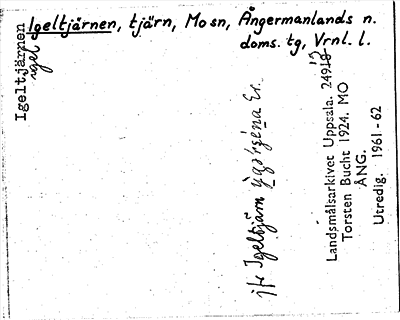 Igeltjärnen
igel
Igeltjärnen, tjärn, Mo sn, Ångermanlands n.
doms. tg, Vrnl. l.
jfr Igeltjärn
Landsmålsarkivet Uppsala. 249
Torsten Bucht 1924. MO
ÅNG.
Utredig. 1961-62